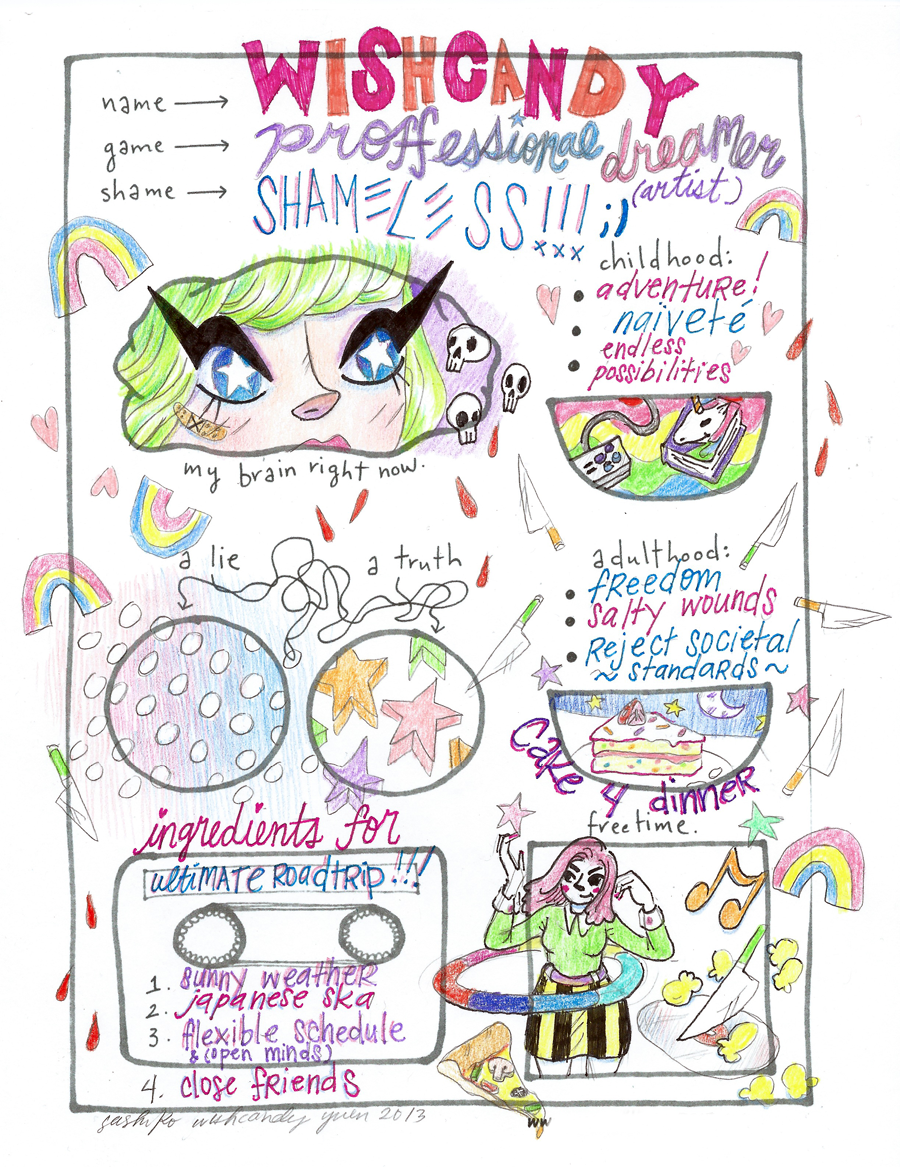 name → WISHCANDY
game → proffessional dreamer
(artist)
shame → SHAMELESS!!! ;)
xxx
childhood:
• adventure!
• naiveté
• endless
possibilities
my brain right now.
a lie
a truth
adulthood:
• freedom
• salty wounds
• Reject societal
~ standards ~
cake 4 dinner
ingredients for
ultimate Roadtrip!!!
1. sunny weather
2. japanese ska
3. flexible schedule
& (open minds)
4. close friends
free time.
sashiko wishcandy yuen 2013
ww